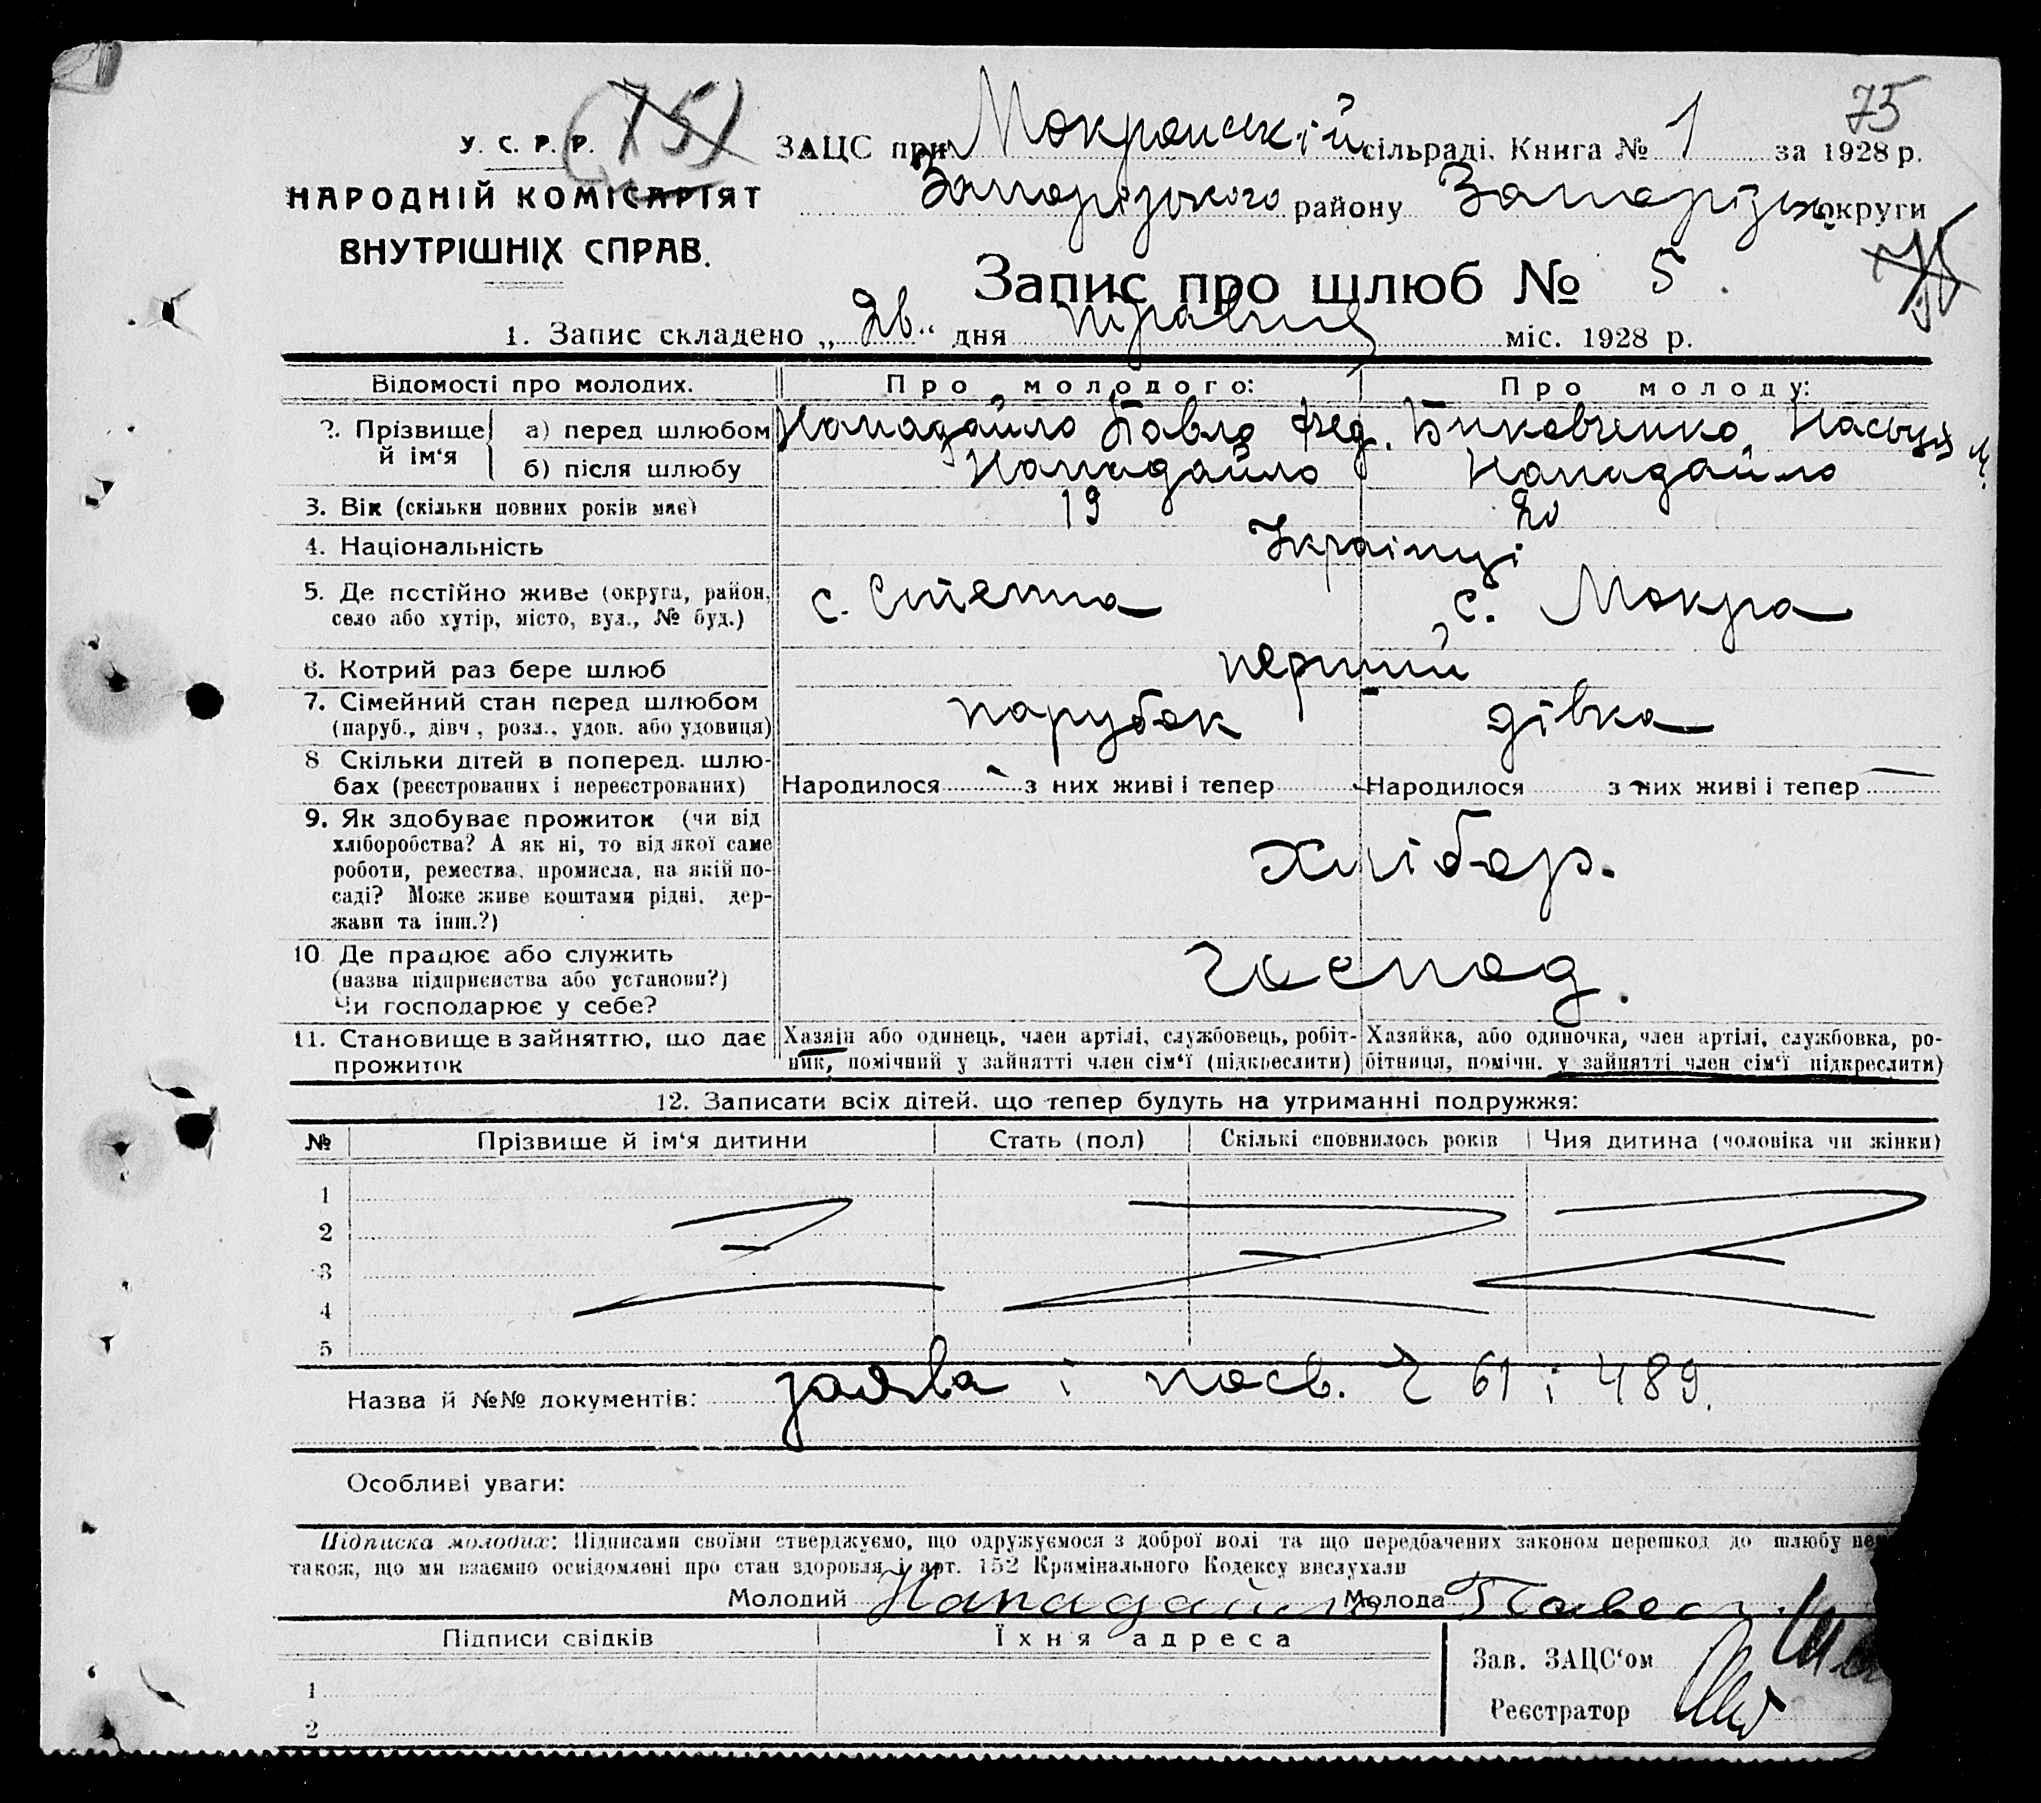 75
У. С. Р. Р. (75) ЗАЦС при Мокрянській сільраді. Книга № 1 за 1928 р.
НАРОДНІЙ КОМІСАРІЯТ Запорізького району Запорізьк округи
ВНУТРІШНІХ СПРАВ. 75
Запис про шлюб № 5.
1. Запис складено „ 26 “ дня травня міс. 1928 р.
Відомості про молодих. Про молодого: Про молоду:
2. Прізвище й ім‘я а) перед шлюбом Нападайло Павло Фед. Биковченко Настя
б) після шлюбу Нападайло Нападайло
3. Вік (скільки повних років має) 19 20
4. Національність Українці
5. Де постійно живе (округа, район, с. Степна с. Мокра
село або хутір, місто, вул., № буд.)
6. Котрий раз бере шлюб перший
7. Сімейний стан перед шлюбом парубок дівка
(паруб., дівч., розл., удов. або удовиця)
8 Скільки дітей в поперед. шлю-
бах (реєстрованих і нереєстрованих) Народилося — з них живі і тепер Народилося з них живі і тепер —
9. Як здобуває прожиток (чи від
хліборобства? А як ні, то від якої саме
роботи, ремества, промисла, на якій по- хлібор.
саді? Може живе коштами рідні, дер-
жави та інш.?)
10 Де працює або служить
(назва підприєнства або установи?) господ.
Чи господарює у себе?
11. Становище в зайняттю, що дає Хазяїн або одинець, член артілі, службовець, робіт- Хазяйка, або одиночка, член артілі, службовка, ро-
прожиток ник, помічний у зайнятті член сім‘ї (підкреслити) бітниця, помічн. у зайнятті член сім‘ї підкреслити)
12. Записати всіх дітей. що тепер будуть на утриманні подружжя:
№ Прізвище й ім‘я дитини Стать (пол) Скількі сповнилось років Чия дитина (чоловіка чи жінки)
1
2
3
4
5
Назва й №№ документів: заява і посв. Ч 61 і 489.
Особливі уваги:
Підписка молодих: Підписами своїми стверджуємо, що одружуємося з доброї волі та що передбачених законом перешкод до шлюбу
також, що ми взаємно освідомлені про стан здоровля і арт. 152 Крамінального Кодексу вислухали
Молодий Нападайло Молода
Підписи свідків Їхня адреса Зав. ЗАЦС‘ом
1
Реєстратор
2